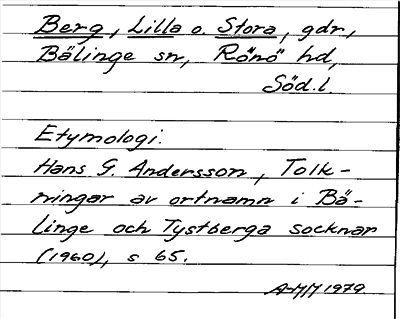 Berg, Lilla o. Stora, gdr,
Bälinge sn, Rönö hd,
Söd.l.
Etymologi.
Hans G. Andersson, Tolk-
ningar av ortnamn i Bä-
linge och Tystberga socknar
(1960), s 65.
AMM 1979